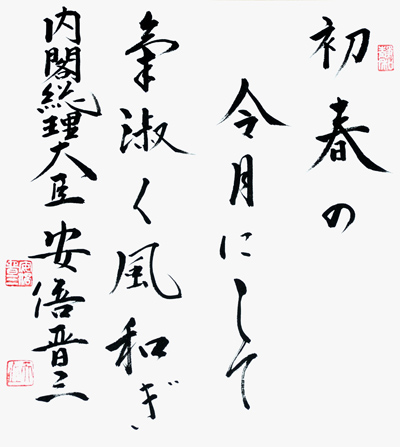 初春の
令月にして
氣淑く風和ぎ
内閣総理大臣 安倍晋三